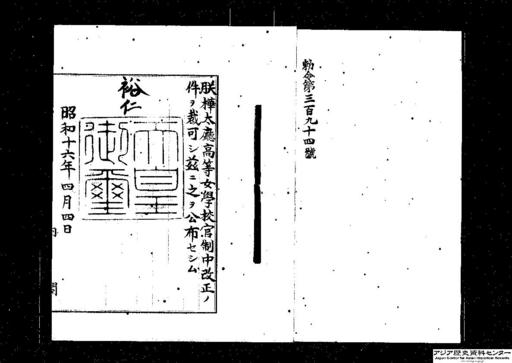 勅令第三百九十四號
朕樺太廳高等女學校官制中改正ノ
件ヲ裁可シ茲ニ之ヲ公布セシム
裕仁
天皇
御璽
昭和十六年四月四日
アジア歴史資料センター
Japan Center for Asian Historical Records